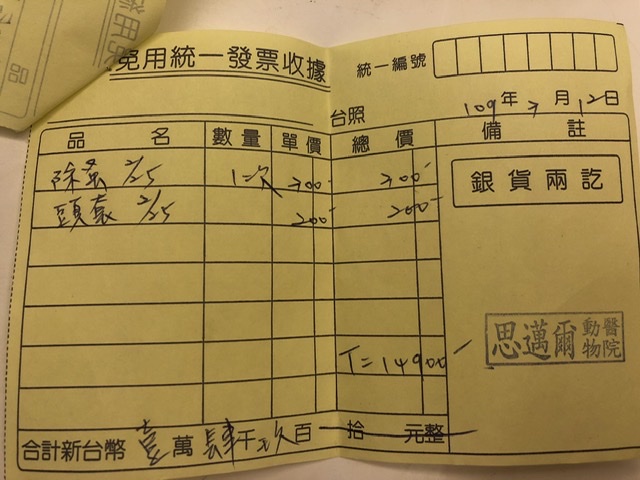 免用統一發票收據
統一編號
台照
109年 7月 12日
品名 數量 單價 總價 備註
除蚤 2/25 1次 300- 300-
頭套 2/25 200- 200-
銀貨兩訖
思邁爾動物醫院
T=14900-
合計新台幣 壹萬肆千玖百拾元整